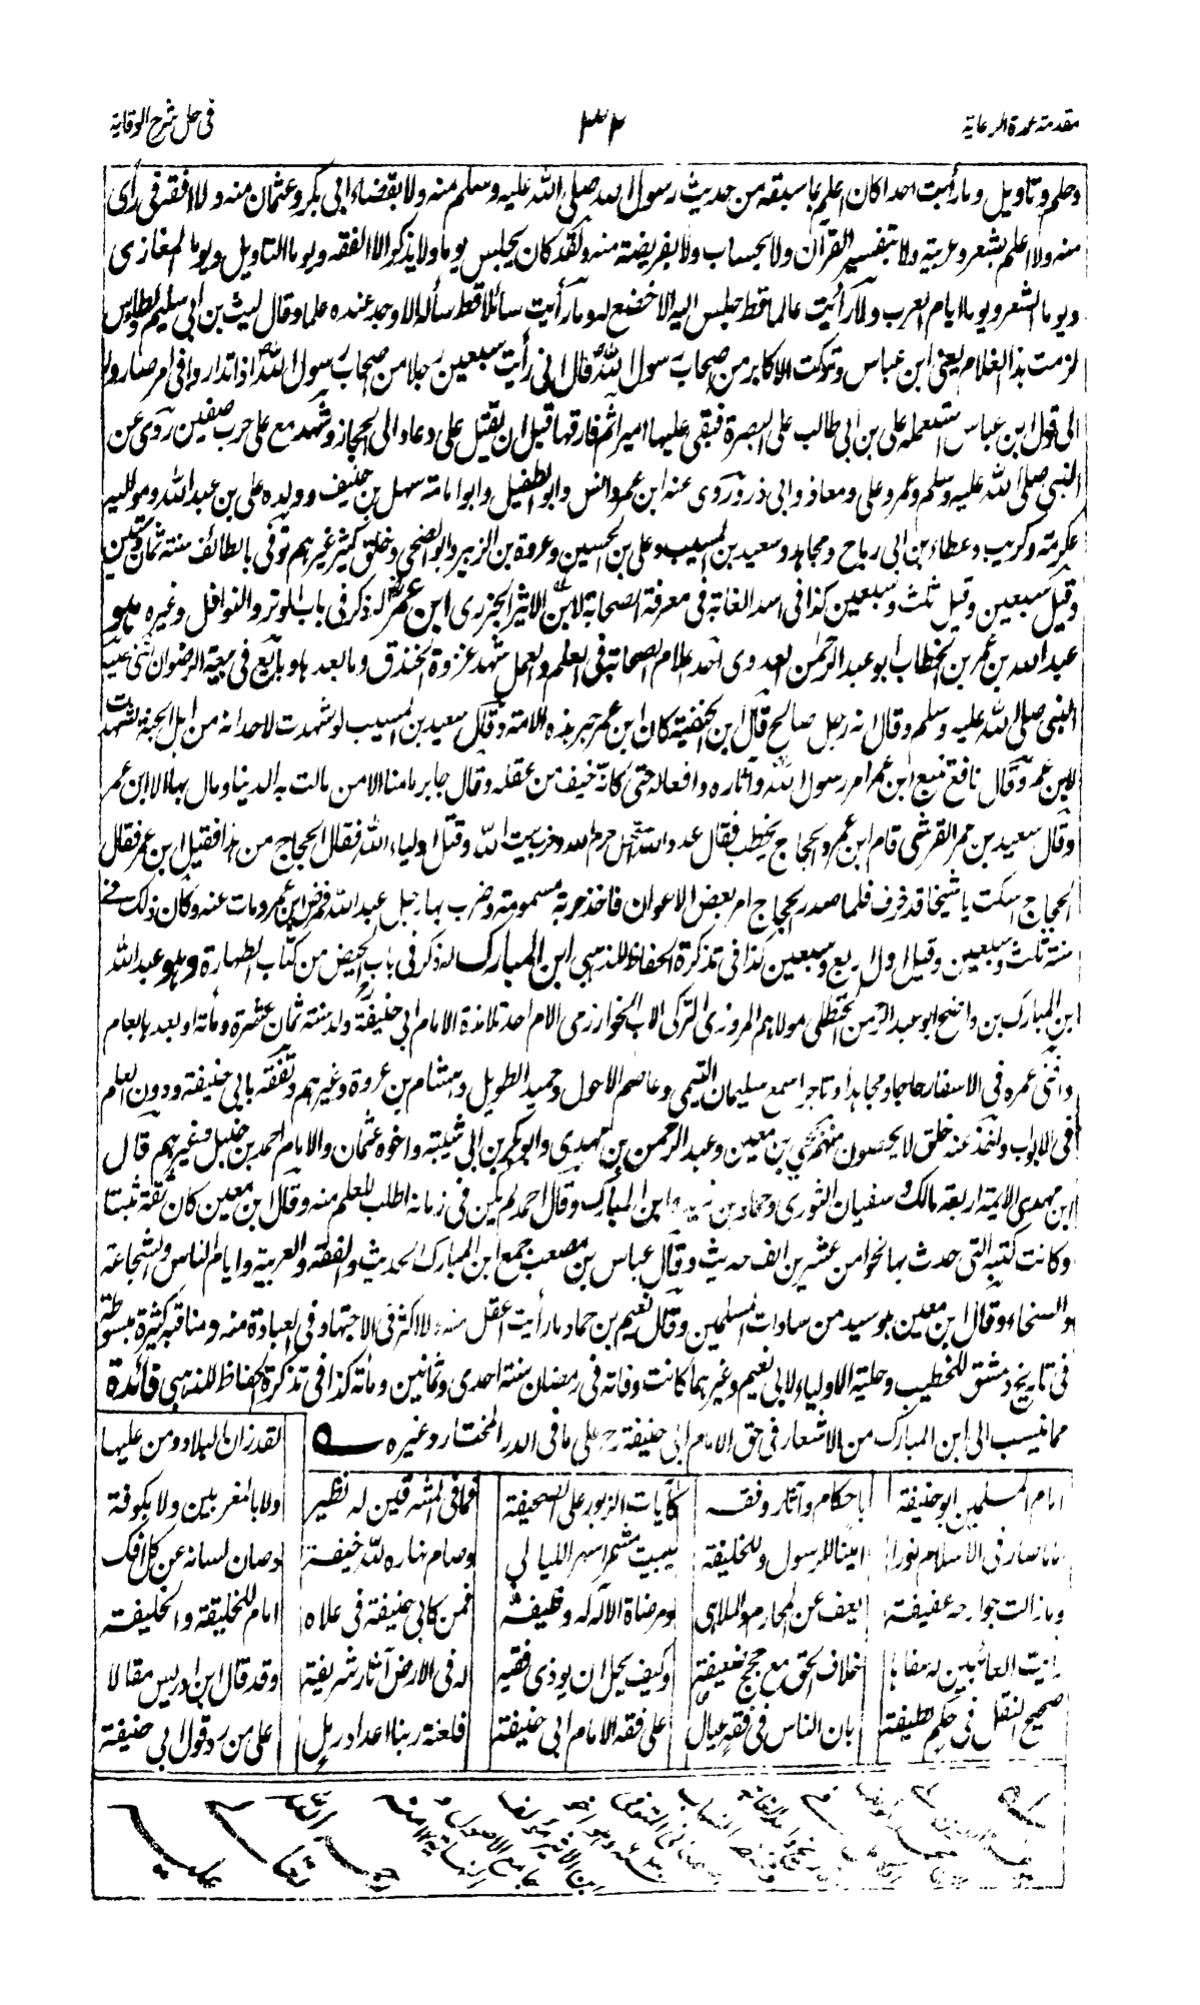 مقدمة عمدة الرعاية
٣٢
فى حل شرح الوقاية
وحلم وتاويل وما رأيت احدا كان اعلم بما سبقه من حديث رسول الله صلى الله عليه وسلم منه ولا بقضاء ابى بكر وعثمان منه ولا افقه فى رأى
منه ولا اعلم بشعر وعربية ولا بتفسير القرآن ولا بحساب ولا بفريضة منه ولقد كان يجلس يوما ولا يذكر الا الفقه ويوما التاويل ويوما المغازى
ويوما الشعر ويوما ايام العرب ولا رأيت عالما قط جلس اليه الا خضع له وما رأيت سائلا قط سأله الا وجد عنده علما وقال ليث بن ابى سليم لطاؤس
لزمت هذا الغلام يعنى ابن عباس وتركت الاكابر من صحاب رسول الله قال انى رأيت سبعين رجلا من صحاب رسول الله اذا تدارؤا فى امر صاروا
الى قول ابن عباس استعمله على بن ابى طالب على البصرة فبقى عليها اميرا ثم فارقها قبل ان يقتل على وعاد الى الحجاز وشهد مع على حرب صفين روى عن
النبى صلى الله عليه وسلم وعمر وعلى ومعاذ وابى ذر وروى عنه ابن عمر وانس وابو الطفيل وابو امامة سهل بن حنيف وولده على بن عبد الله ومواليه
عكرمة وكريب وعطاء بن ابى رباح ومجاهد وسعيد بن المسيب وعلى بن الحسين وعروة بن الزبير وابو الضحى وخلق كثير غيرهم توفى بالطائف سنة ثمان وستين
وقيل سبعين وقيل ثلث وسبعين كذا فى اسد الغابة فى معرفة الصحابة لابن الاثير الجزرى ابن عمر له ذكر فى باب الوتر والنوافل وغيره هو
عبد الله بن عمر بن الخطاب ابو عبد الرحمن العدوى احد اعلام الصحابة فى العلم والعمل شهد غزوة الخندق وما بعدها وبايع فى بيعة الرضوان اثنى عليه
النبى صلى الله عليه وسلم وقال انه رجل صالح قال ابن الحنفية كان ابن عمر حبر هذه الامة وقال سعيد بن المسيب لو شهدت لاحد انه من اهل الجنة لشهدت
لابن عمر وقال نافع تتبع ابن عمر امر رسول الله وآثاره وافعاله حتى كانه خيف من عقله وقال جابر ما منا الا من مالت به الدنيا ومال بها الا ابن عمر
وقال سعيد بن عمر القرشى قام ابن عمر والحجاج يخطب فقال عدو الله استحل حرم الله وخرب بيت الله وقتل اولياء الله فقال الحجاج من هذا فقيل ابن عمر فقال
الحجاج اسكت يا شيخا قد خرف فلما صدر الحجاج امر بعض الاعوان فاخذ حربة مسمومة وضرب بها رجل عبد الله فمرض ابن عمر ومات عنه وكان ذلك فى
سنة ثلث وسبعين وقيل اول اربع وسبعين كذا فى تذكرة الحفاظ للذهبى ابن المبارك له ذكر فى باب الحيض من كتاب الطهارة وهو عبد الله
ابن المبارك بن واضح ابو عبد الرحمن الحنظلى مولاهم المروزى التركى الاب الخوارزمى الام احد تلامذة الامام ابى حنيفة ولد سنة ثمان عشرة ومائة او بعدها بعام
وافنى عمره فى الاسفار حاجا ومجاهدا وتاجرا سمع سليمان التيمى وعاصم الاحول وحميد الطويل وهشام بن عروة وغيرهم وتفقه بابى حنيفة ودون العلم
فى الابواب واخذ عنه خلق لا يحصون منهم يحيى بن معين وعبد الرحمن بن مهدى وابو بكر بن ابى شيبة واخوه عثمان والامام احمد بن حنبل وغيرهم قال
ابن مهدى الائمة اربعة مالك وسفيان الثورى وحماد بن زيد وابن المبارك وقال احمد لم يكن فى زمانه اطلب للعلم منه وقال ابن معين كان ثقة ثبتا
وكانت كتبه التى حدث بها نحوا من عشرين الف حديث وقال عباس بن مصعب جمع ابن المبارك الحديث والفقه والعربية وايام الناس والشجاعة
والسخاء وقال ابن معين هو سيد من سادات المسلمين وقال نعيم بن حماد ما رأيت اعقل منه ولا اكثر فى الاجتهاد فى العبادة منه ومناقبه كثيرة مبسوطة
فى تاريخ دمشق للخطيب وحلية الاولياء لابى نعيم وغيرهما كانت وفاته فى رمضان سنة احدى وثمانين ومائة كذا فى تذكرة الحفاظ للذهبى فائدة
مما ينسب الى ابن المبارك من الاشعار فى حق الامام ابى حنيفة رح على ما فى الدر المختار وغيره ه لقد زان البلاد ومن عليها
امام المسلمين ابو حنيفة باحكام وآثار وفقه كآيات الزبور على الصحيفة فما فى المشرقين له نظير ولا بالمغربين ولا بكوفة
اماما صار فى الاسلام نورا امينا للرسول وللخليفة يبيت مشمرا سهر الليالى وصام نهاره لله خيفة وصان لسانه عن كل افك
وما زالت جوارحه عفيفة يعف عن المحارم والملاهى ومرضاة الاله له وظيفة فمن كابى حنيفة فى علاه امام للخليقة والخليفة
رايت العائبين له سفاها خلاف الحق مع حجج ضعيفة وكيف يحل ان يوذى فقيه له فى الارض آثار شريفة وقد قال ابن ادريس مقالا
صحيح النقل فى حكم لطيفة بان الناس فى فقه عيال على فقه الامام ابى حنيفة فلعنة ربنا اعداد رمل على من رد قول ابى حنيفة